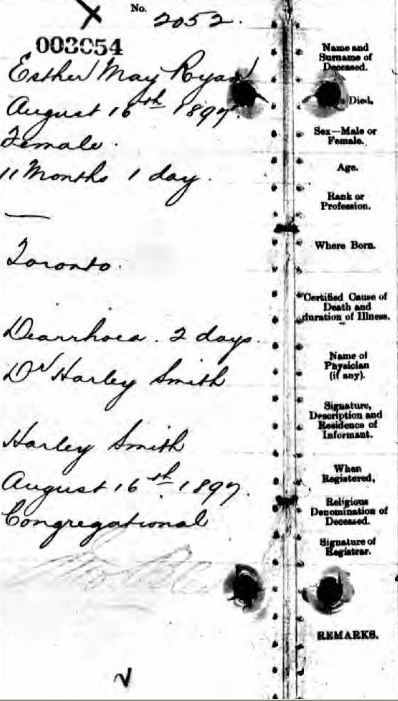 No. 2052.
003054
Esther May Ryan
August 16th 1897.
Female.
11 Months 1 day.
—
Toronto.
Diarrhoea. 2 days.
Dr Harley Smith
Harley Smith
August 16th 1897.
Congregational
Name and
Surname of
Deceased.
Died.
Sex—Male or
Female.
Age.
Rank or
Profession.
Where Born.
Certified Cause of
Death and
duration of Illness.
Name of
Physician
(if any).
Signature,
Description and
Residence of
Informant.
When
Registered.
Religious
Denomination of
Deceased.
Signature of
Registrar.
REMARKS.